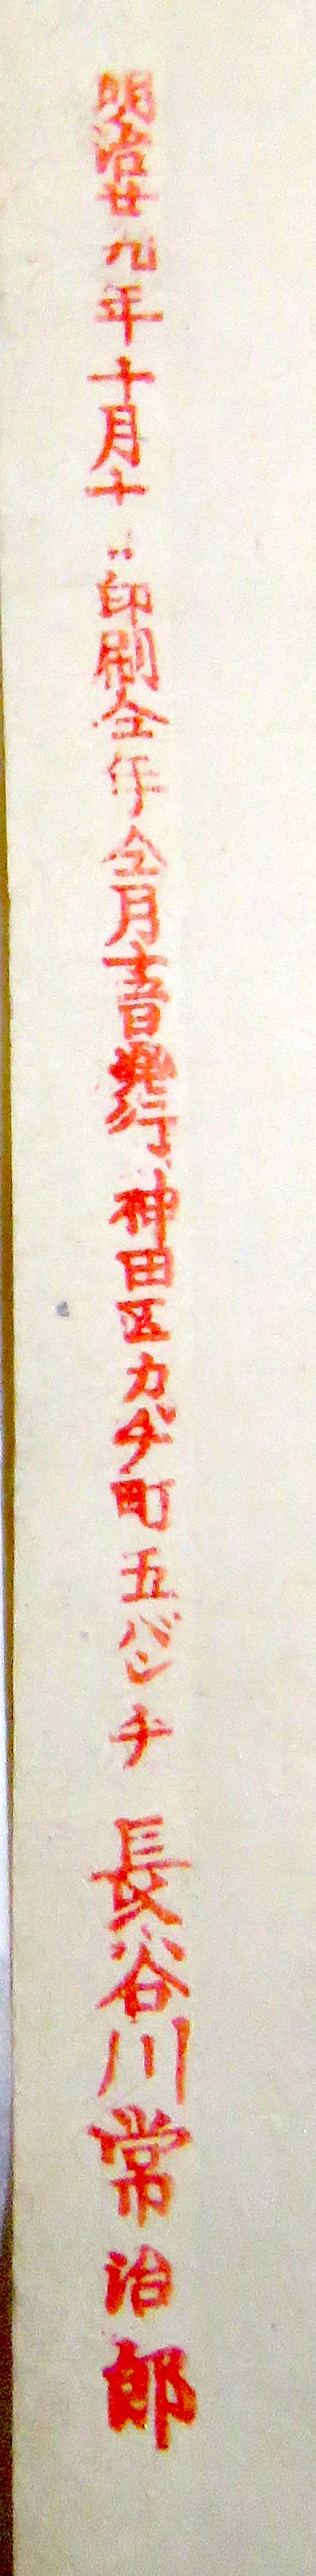 明治廿九年十月十　印刷仝年仝月十五日発行神田区カヂ町五バンチ 長谷川常治郎